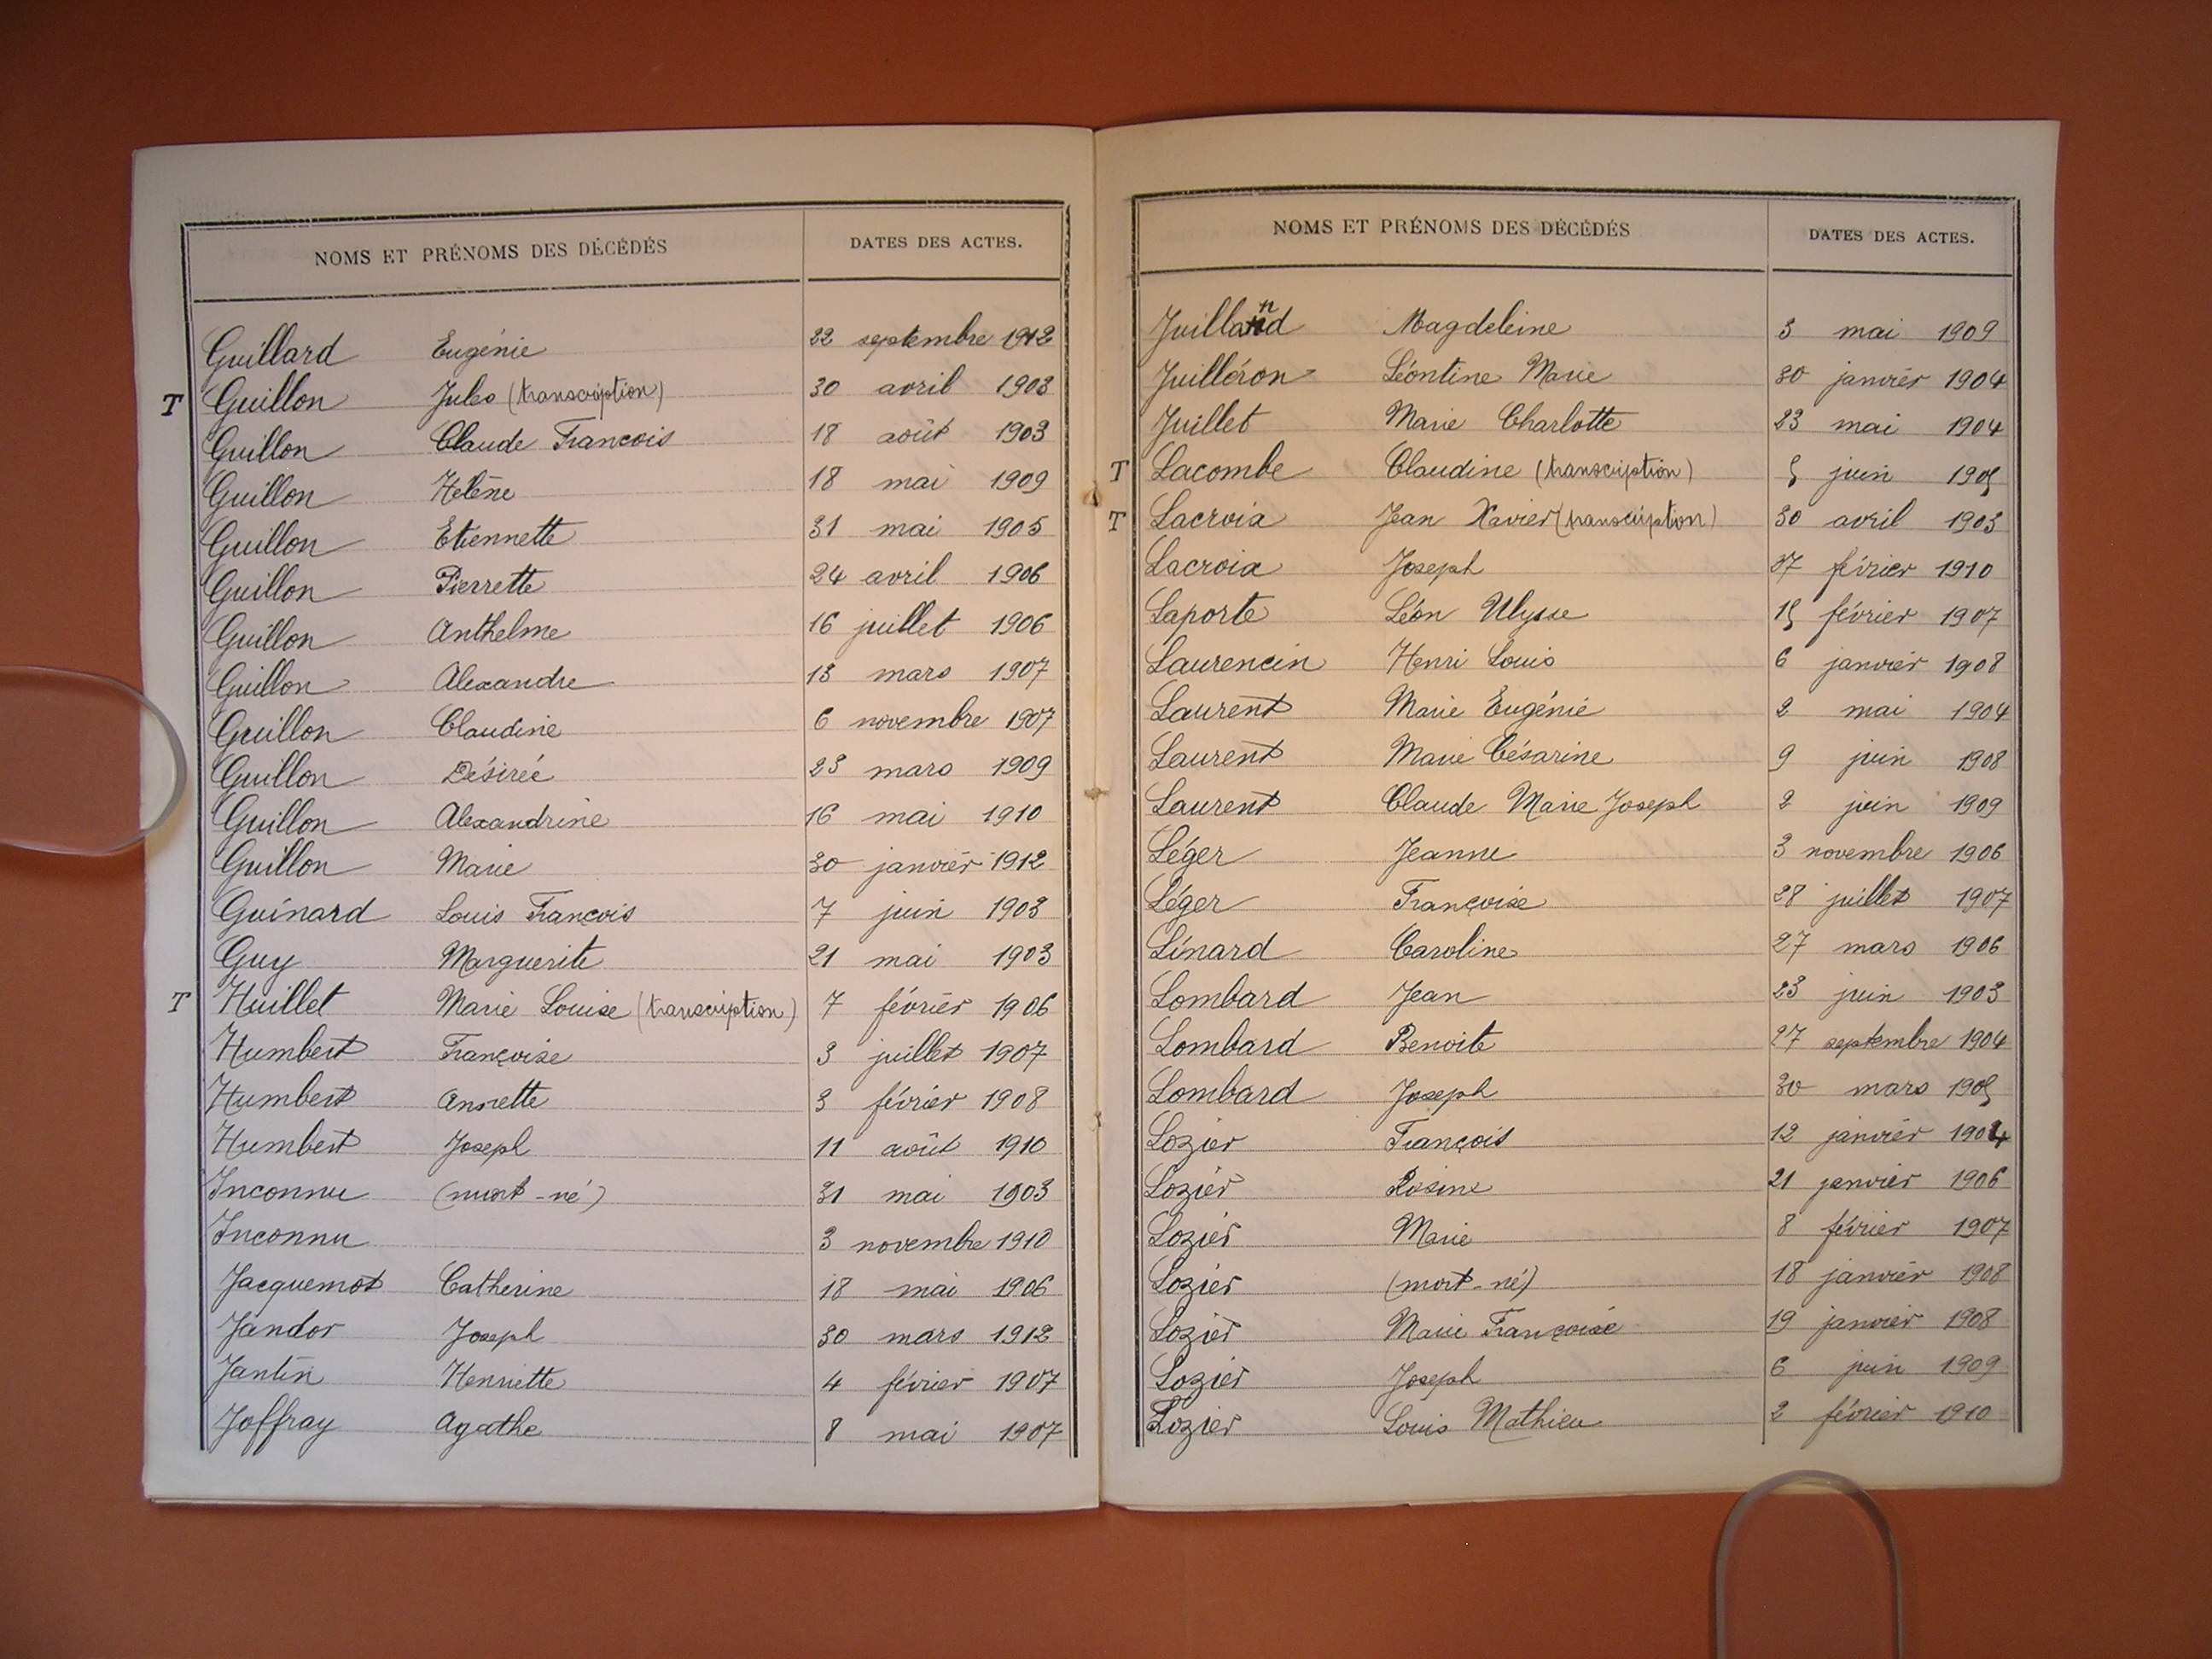 NOMS ET PRÉNOMS DES DÉCÉDÉS DATES DES ACTES.
Guillard Eugénie 22 septembre 1912
T Guillon Jules (transcription) 30 avril 1903
Guillon Claude François 18 août 1903
Guillon Helène 18 mai 1909
Guillon Etiennette 31 mai 1905
Guillon Pierrette 24 avril 1906
Guillon Anthelme 16 juillet 1906
Guillon Alexandre 13 mars 1907
Guillon Claudine 6 novembre 1907
Guillon Désirée 23 mars 1909
Guillon Alexandrine 16 mai 1910
Guillon Marie 30 janvier 1912
Guinard Louis François 7 juin 1903
Guy Marguerite 21 mai 1903
T Huillet Marie Louise (transcription) 7 février 1906
Humbert Françoise 3 juillet 1907
Humbert Annette 3 février 1908
Humbert Joseph 11 août 1910
Inconnu (mort-né) 31 mai 1903
Inconnu 3 novembre 1910
Jacquemot Catherine 18 mai 1906
Jandor Joseph 30 mars 1912
Jantin Henriette 4 février 1907
Joffray Agathe 8 mai 1907
NOMS ET PRÉNOMS DES DÉCÉDÉS DATES DES ACTES.
Juilland Magdeleine 3 mai 1909
Juilléron Léontine Marie 30 janvier 1904
Juillet Marie Charlotte 23 mai 1904
T Lacombe Claudine (transcription) 5 juin 1905
T Lacroix Jean Xavier (transcription) 30 avril 1903
Lacroix Joseph février 1910
Laporte Léon Ulysse 15 février 1907
Laurencin Henri Louis 6 janvier 1908
Laurent Marie Eugénie 2 mai 1904
Laurent Marie Césarine 9 juin 1908
Laurent Claude Marie Joseph 2 juin 1909
Léger Jeanne 3 novembre 1906
Léger Françoise 28 juillet 1907
Linard Caroline 27 mars 1906
Lombard Jean 23 juin 1903
Lombard Benoite 27 septembre 1904
Lombard Joseph 30 mars 1905
Lozier François 12 janvier 1904
Lozier Rosine 21 janvier 1906
Lozier Marie 8 février 1907
Lozier (mort-né) 18 janvier 1908
Lozier Marie Françoise 19 janvier 1908
Lozier Joseph 6 juin 1909
Lozier Louis Mathieu 2 février 1910